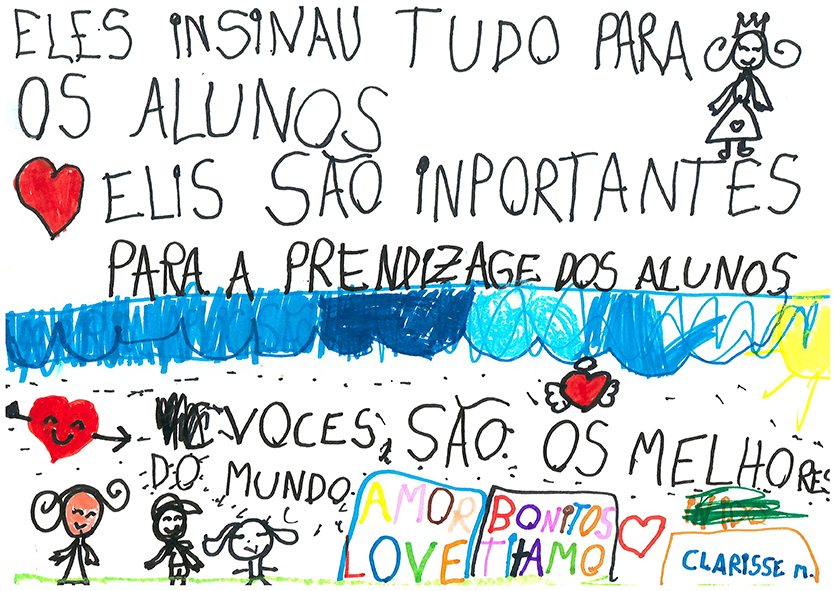 ELES INSINAU TUDO PARA
OS ALUNOS
ELIS SÃO INPORTANTES
PARA A PRENDIZAGE DOS ALUNOS
VOCES SÃO OS MELHORES
DO MUNDO
AMOR
LOVE
BONITOS
TIHAMO
CLARISSE M.